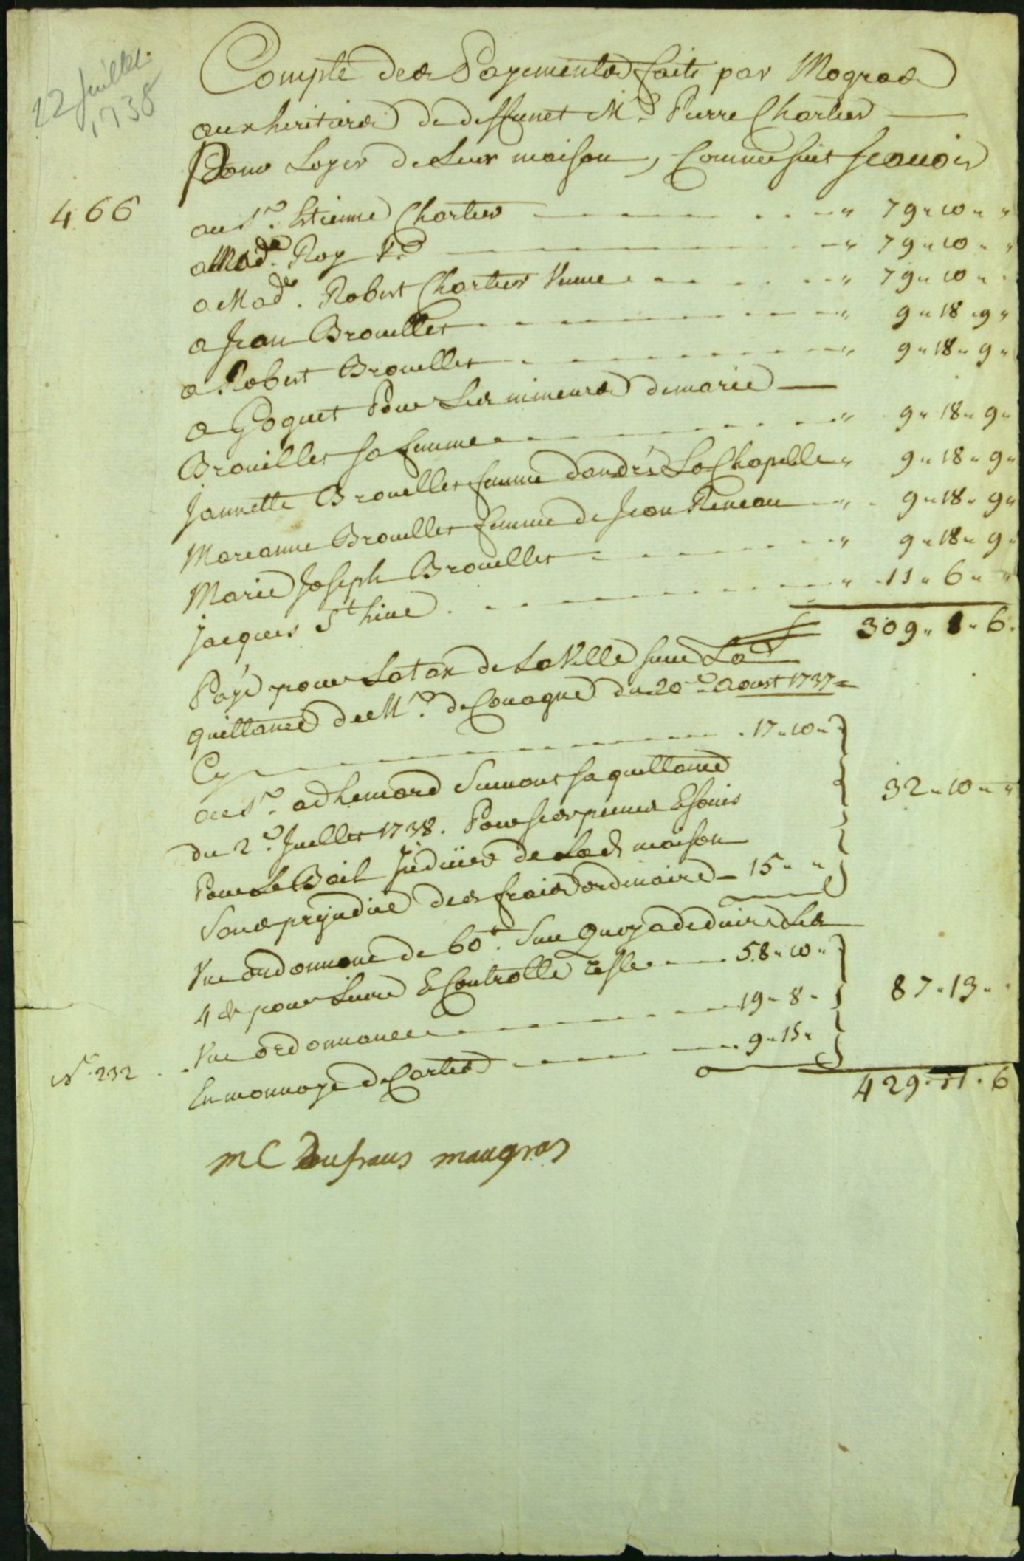 22 Juillet
1738
Compte des Payements faits par Mogras
aux heritiers de deffunct Mr. Pierre Chartier
Pour Loyer de Leur maison, Comme suit scavoir
466
au Sr. Estienne Chartier - - - " 79 " 10 " "
a Made. Roy Ve. " 79 " 10 " "
a Made. Robert Chartier Veuve - - - " 79 " 10 " "
a Jean Brouillet - - - " 9 " 18 " 9 "
a Robert Brouillet - - - " 9 " 18 " 9 "
a Goguet Pour Les mineurs de marie
Brouillet sa femme - - - " 9 " 18 " 9 "
Jannette Brouillet femme dandré LaChapelle " 9 " 18 " 9 "
Marianne Brouillet femme de Jean Reneau " 9 " 18 " 9 "
Marie Joseph Brouillet - - - " 9 " 18 " 9 "
Jacques - - - " 11 " 6 " "
309 " 1 " 6
Payé pour La tax de La Ville suiv La
quittance de Mr. de Couagne du 20e. Aoust 1737
Cy - - - 17 " 10 "
au Sr. adhemard Suivant sa quittance
du 2e. Juillet 1738. Pour ses peines & soins
Pour Le Bail Judiciier de Lad. maison
Sans prejudice des frais ordinaire 15 " "
32 " 10 " "
Une ordonnance de 60 lt. Sur Quoy a deduire Les
4 d. pour Livre & Controlle reste 58 " 10 "
Une ordonnance - - - 19 " 8 "
No. 232
En monnoye de Cartes - - - 9 " 15 "
87 " 13 "
429 " 11 " 6
m C Dufraus maugras